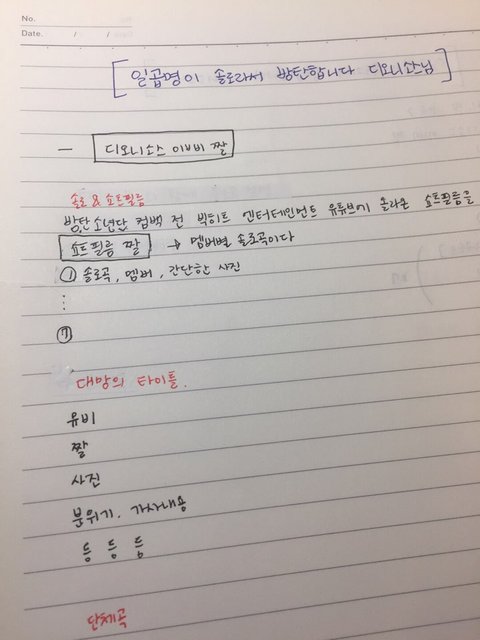 No.
Date. / /
[일곱명이 솔로라서 방탄합니다 디오니소스님]
— 디오니소스 이비비 짤
솔로 & 쇼트필름
방탄소년단 컴백 전 빅히트 엔터테인먼트 유튜브에 올라온 쇼트필름을
쇼트필름 짤 → 멤버별 솔로곡이다
① 솔로곡, 멤버, 간단한 사진
⋮
⑦
대망의 타이틀.
유비
짤
사진
분위기. 가사내용
등 등 등
단체곡